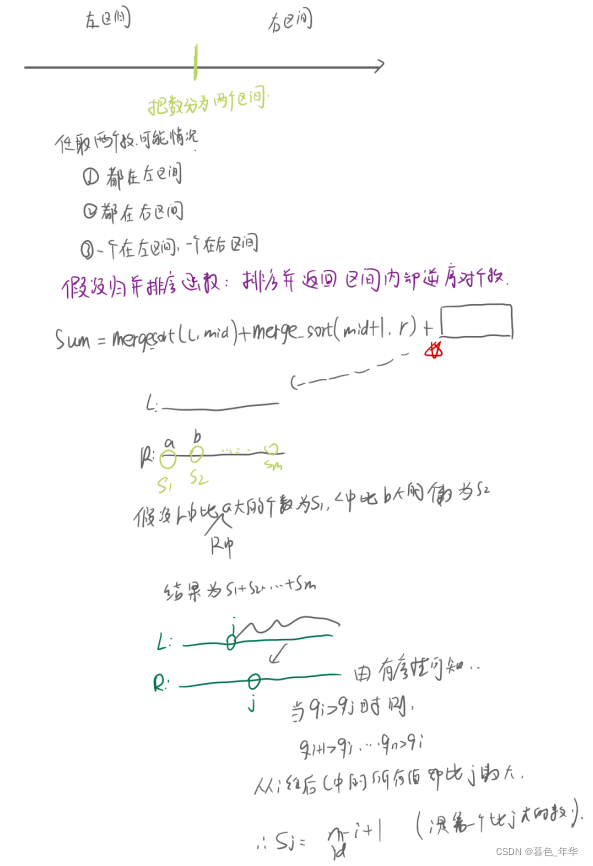 左区间 右区间
把数分为两个区间.
任取两个数.可能情况
① 都在左区间
② 都在右区间
③ 一个在左区间,一个在右区间
假设归并排序函数: 排序并返回区间内部逆序对个数.
Sum = mergesort(l,mid)+merge_sort(mid+1.r)+
L:
R: a b
S1 S2 ... Sm
假设L中比a大的个数为S1,L中比b大的 为S2
R中
结果为S1+S2...+Sm
L: i
R:
j
由有序性可知..
当qi>qj时 则,
qi+1>qi...qn>qi
从i往后L中的所有值都比j的大.
∴ Sj = i+1 (i是第一个比j大的数).
id
CSDN @暮色_年华